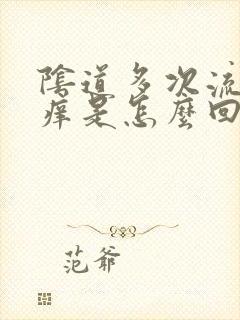 陰道多次流
癢是怎麼回
范爺